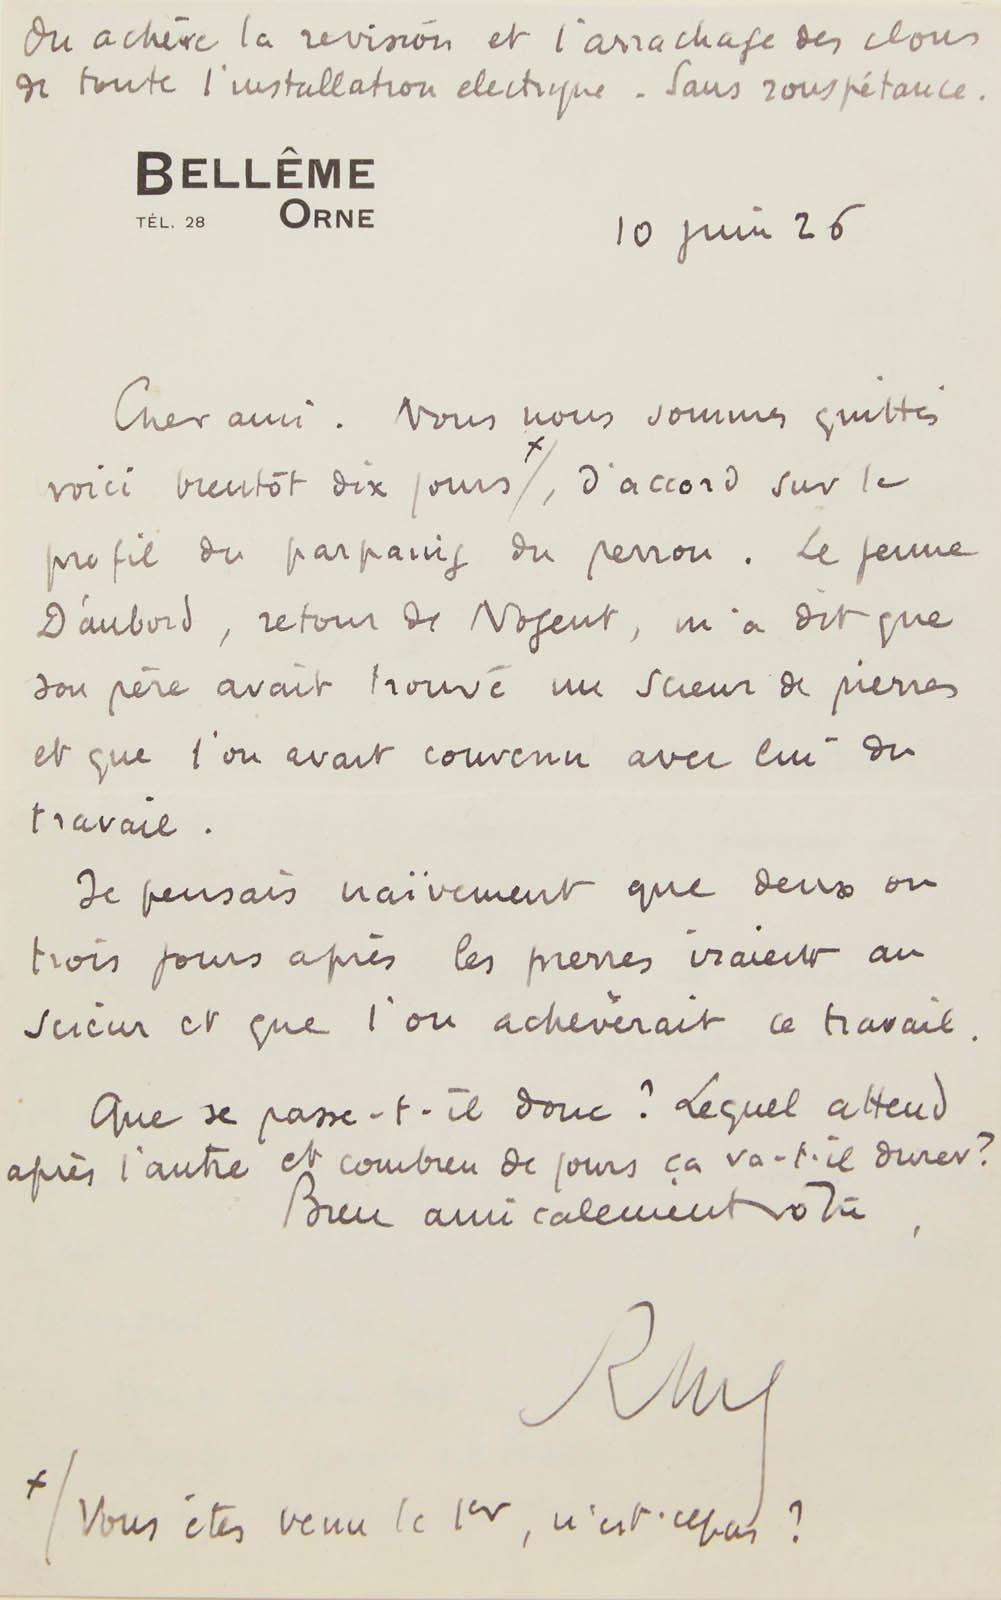 On achève la revision et l'arrachage des clous
de toute l'installation electrique. Sans rouspétance.
BELLÊME
TÉL. 28 ORNE
10 juin 26
Cher ami. Nous nous sommes quittés
voici bientôt dix jours x/, d'accord sur le
profil du parpaing du perron. Le jeune
D'aubord, retour de Nogent, m'a dit que
son père avait trouvé un scieur de pierres
et que l'on avait convenu avec lui du
travail.
Je pensais naïvement que deux ou
trois jours après les pierres iraient au
scieur et que l'on achèverait ce travail.
Que se passe-t-il donc ? Lequel attend
après l'autre et combien de jours ça va-t-il durer ?
Bien amicalement votre,
x/ Vous êtes venu le 1er, n'est-cepas ?